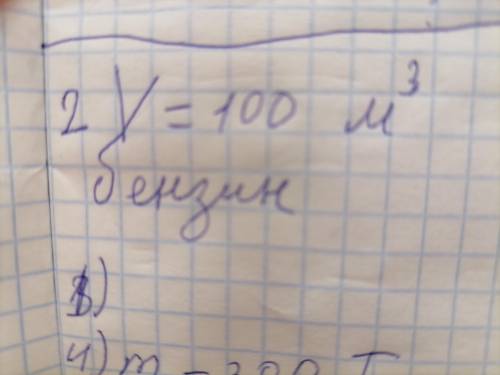 2 V = 100 м³
бензин
3)
4) m = 300 т